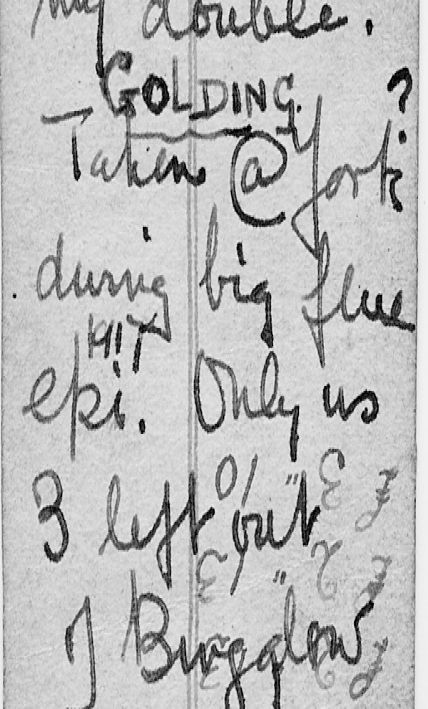 my double.
GOLDING
Taken @ York?
during big flue
1917
epi. Only us
3 left out
of Bungalow